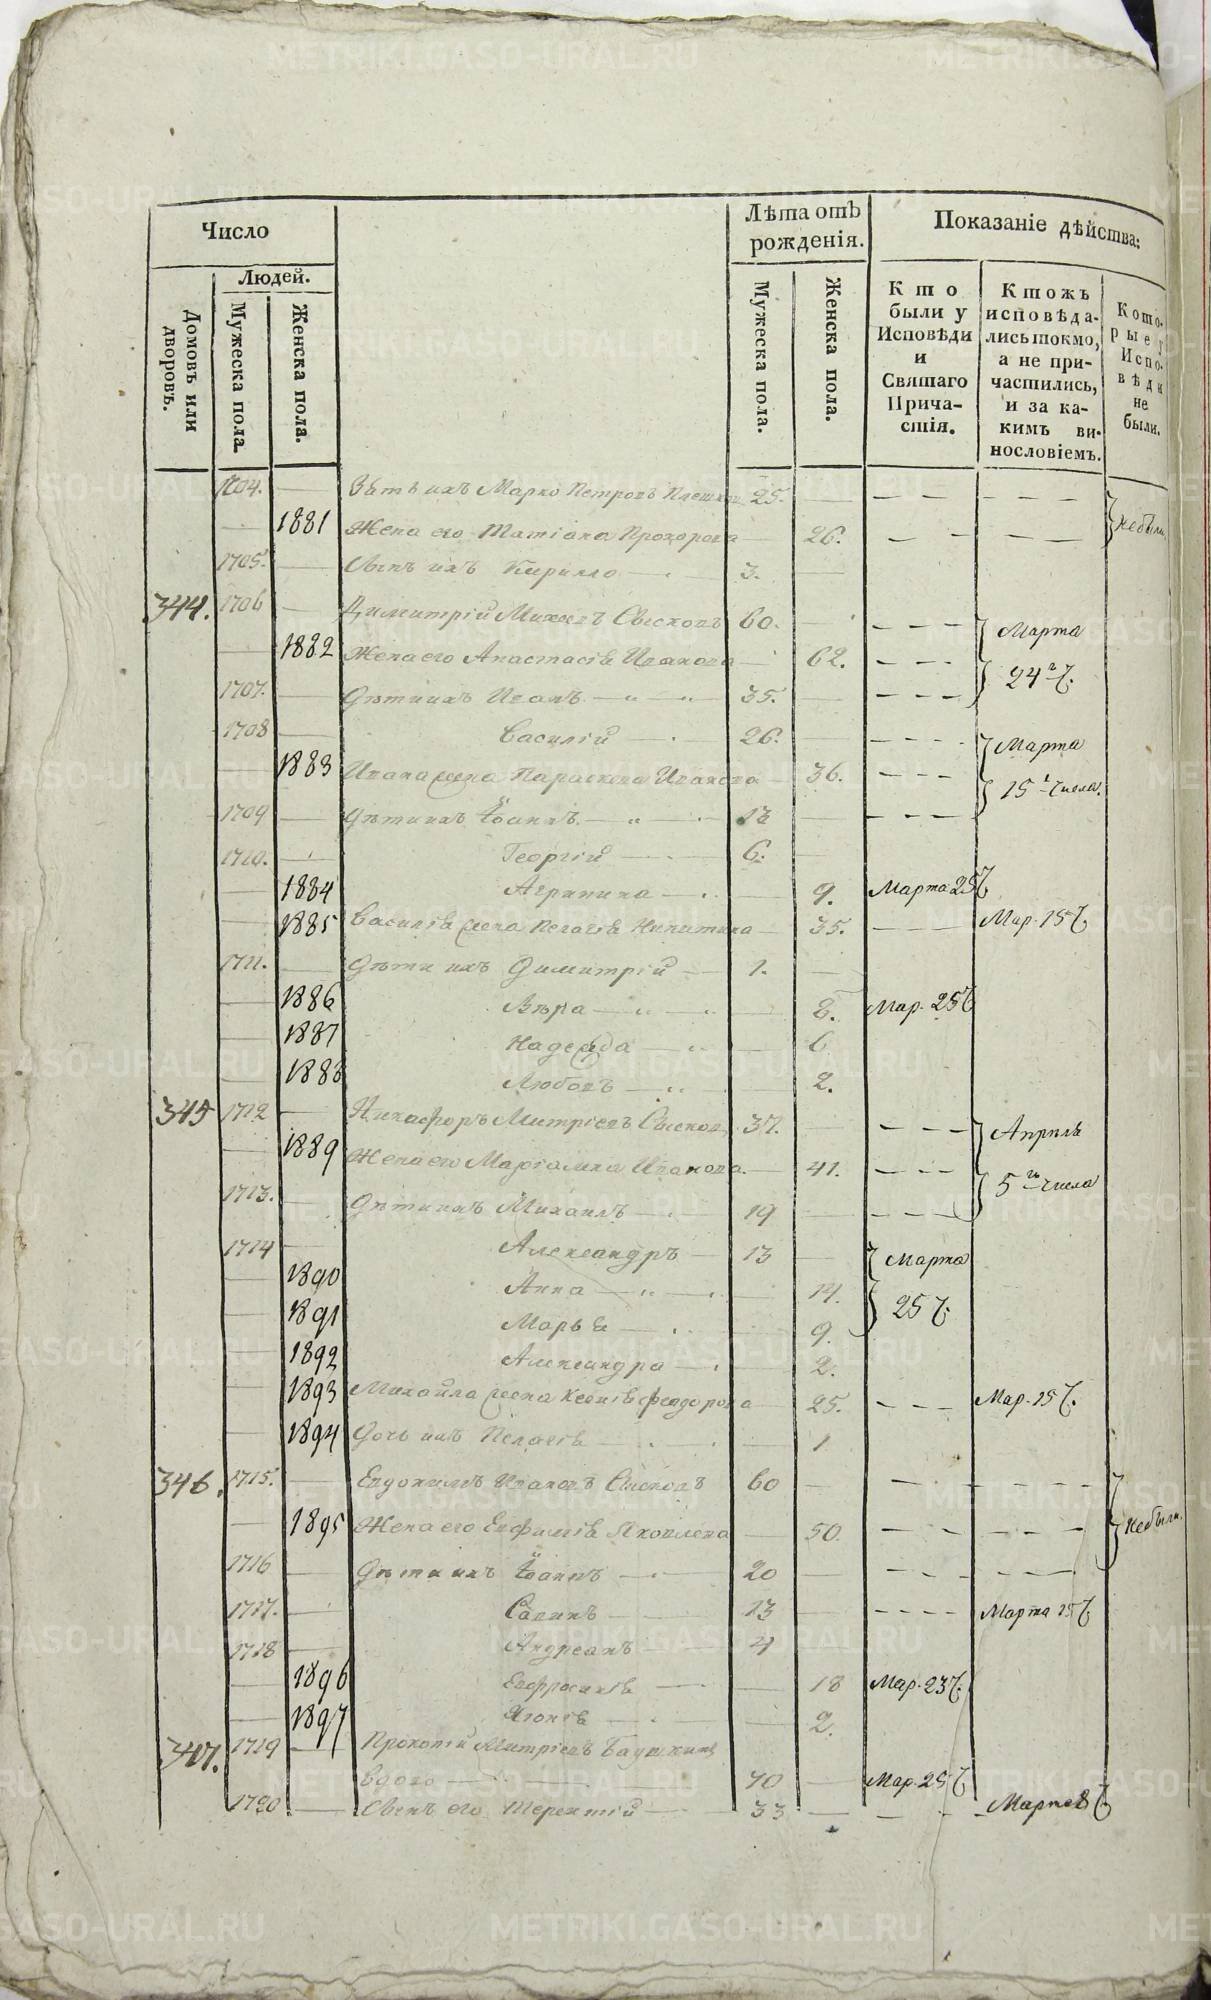 Число
Лѣта отъ рожденія.
Показаніе дѣйства:
Людей.
Домовъ или дворовъ.
Мужеска пола.
Женска пола.
Мужеска пола.
Женска пола.
Кто были у Исповѣди и Святаго Причастія.
Ктожъ исповѣдались токмо, а не причастились, и за какимъ винословіемъ.
Которые у Исповѣди не были.
1704. Зять ихъ Марко Петровъ 25.
1881 Жена его Татіана Прохорова 26. Небыли
1705. Сынъ ихъ Кирилло 3.
344. 1706 Димитрій Михеевъ Сысковъ 60. Марта
1882 Жена его Анастасія Иванова 62. 24 Ч.
1707. Дѣти ихъ Иванъ 35.
1708 Василій 26. Марта
1883 Ивана жена Параскева Иванова 36. 15 числа.
1709 Дѣти ихъ Іоаннъ 13
1710. Георгій 6.
1884 Агрипина 9. Марта 25 Ч
1885 Василія жена Пелагія Никитина 35. Мар. 15 Ч.
1711. Дѣти ихъ Димитрій 1.
1886 Вѣра 8. Мар. 25 Ч
1887 Надежда 6
1888 Любовь 2.
345 1712 Никифоръ Митріевъ Сысковъ 37. Апрѣля
1889 Жена его Маріамна Иванова 41. 5 числа
1713. Дѣти ихъ Михаилъ 19
1714 Александръ 13 Марта
1890 Анна 14. 25 Ч.
1891 Марья 9.
1892 Александра 2.
1893 Михайла жена Ксенія Феодорова 25. Мар. 15 Ч.
1894 Дочь ихъ Пелагія 1
346. 1715. Евдокимъ Ивановъ Сысковъ 60
1895 Жена его Евфимія Яковлева 50. Небыли.
1716 Дѣти ихъ Іоаннъ 20
1717. Савинъ 13 Марта 15 Ч.
1718 Андреанъ 4
1896 Евфросинія 18 Мар. 23 Ч.
1897 2.
347. 1719 Прокопій Митріевъ
вдовъ 70 Мар. 25 Ч
1720 Сынъ его Терентій 33 Марта 8 Ч.
METRIKI.GASO-URAL.RU